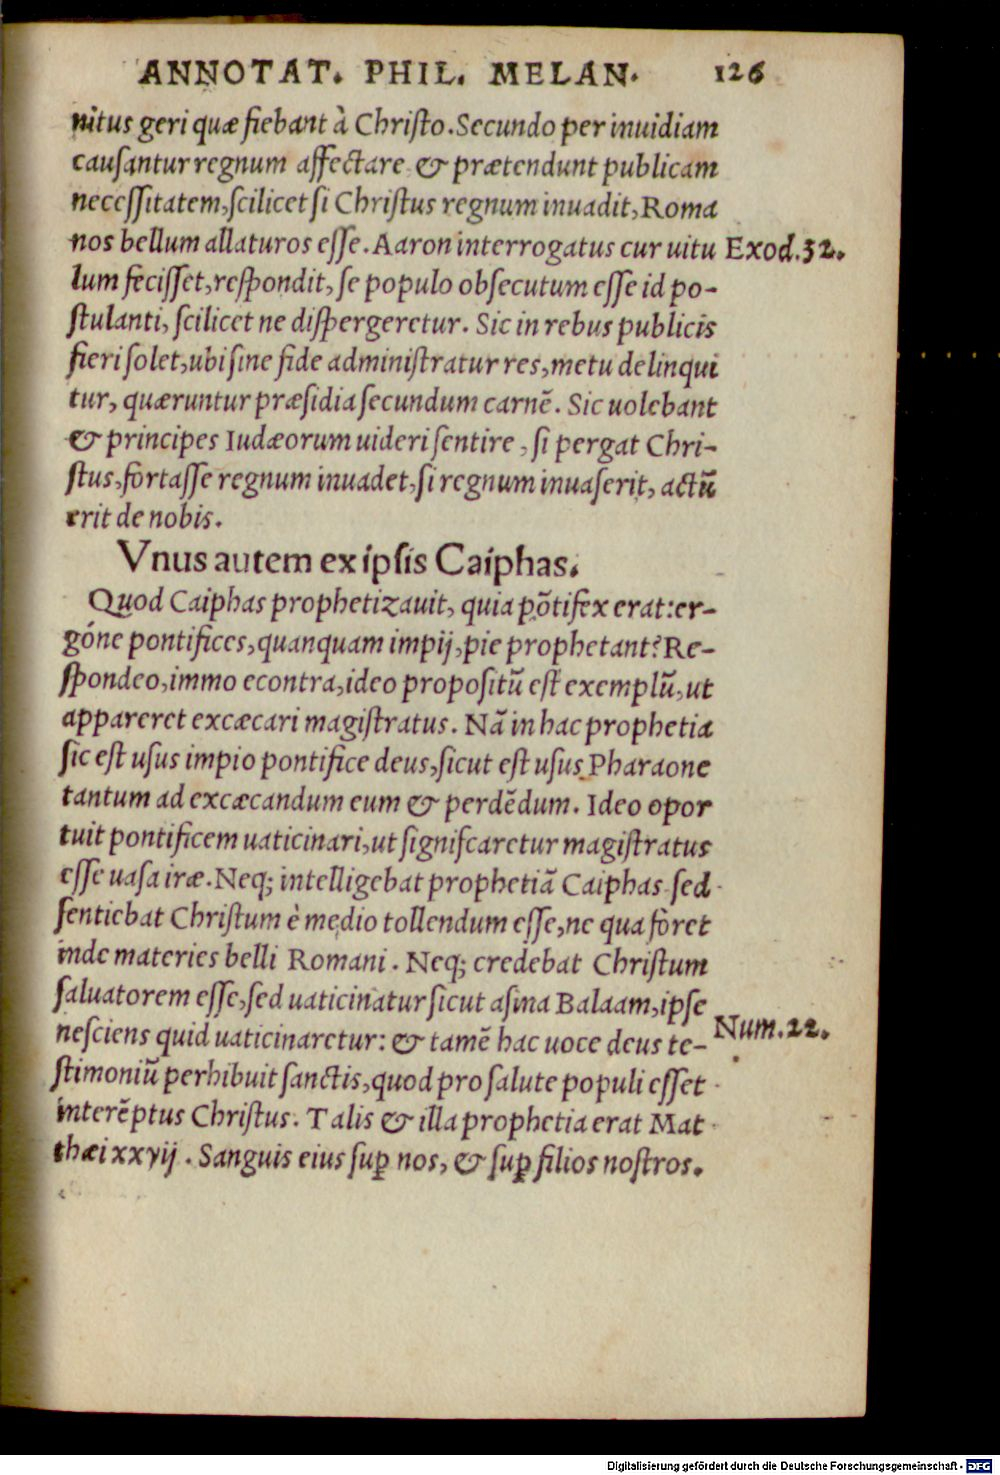 ANNOTAT. PHIL. MELAN. 126
nitus geri quæ fiebant à Chriſto. Secundo per inuidiam
cauſantur regnum affectare & prætendunt publicam
neceſſitatem, ſcilicet ſi Chriſtus regnum inuadit, Roma
nos bellum allaturos eſſe. Aaron interrogatus cur uitu Exod.32.
lum feciſſet, reſpondit, ſe populo obſecutum eſſe id po-
ſtulanti, ſcilicet ne diſpergeretur. Sic in rebus publicis
fieri ſolet, ubi ſine fide adminiſtratur res, metu delinqui
tur, quæruntur præſidia ſecundum carnẽ. Sic uolebant
& principes Iudæorum uideri ſentire, ſi pergat Chri-
ſtus, fortaſſe regnum inuadet, ſi regnum inuaſerit, actũ
erit de nobis.
Vnus autem ex ipſis Caiphas.
Quod Caiphas prophetizauit, quia põtifex erat: er-
góne pontifices, quanquam impij, pie prophetant? Re-
ſpondeo, immo econtra, ideo propoſitũ eſt exemplũ, ut
appareret excæcari magiſtratus. Nã in hac prophetia
ſic eſt uſus impio pontifice deus, ſicut eſt uſus Pharaone
tantum ad excæcandum eum & perdẽdum. Ideo opor
tuit pontificem uaticinari, ut ſignifcaretur magiſtratus
eſſe uaſa iræ. Neq; intelligebat prophetiã Caiphas ſed
ſentiebat Chriſtum è medio tollendum eſſe, ne qua foret
inde materies belli Romani. Neq; credebat Chriſtum
ſaluatorem eſſe, ſed uaticinatur ſicut aſina Balaam, ipſe
neſciens quid uaticinaretur: & tamẽ hac uoce deus te- Num.22.
ſtimoniũ perhibuit ſanctis, quod pro ſalute populi eſſet
interẽptus Chriſtus. Talis & illa prophetia erat Mat
thæi xxvij. Sanguis eius ſuꝑ nos, & ſuꝑ filios noſtros.
Digitalisierung gefördert durch die Deutsche Forschungsgemeinschaft - DFG